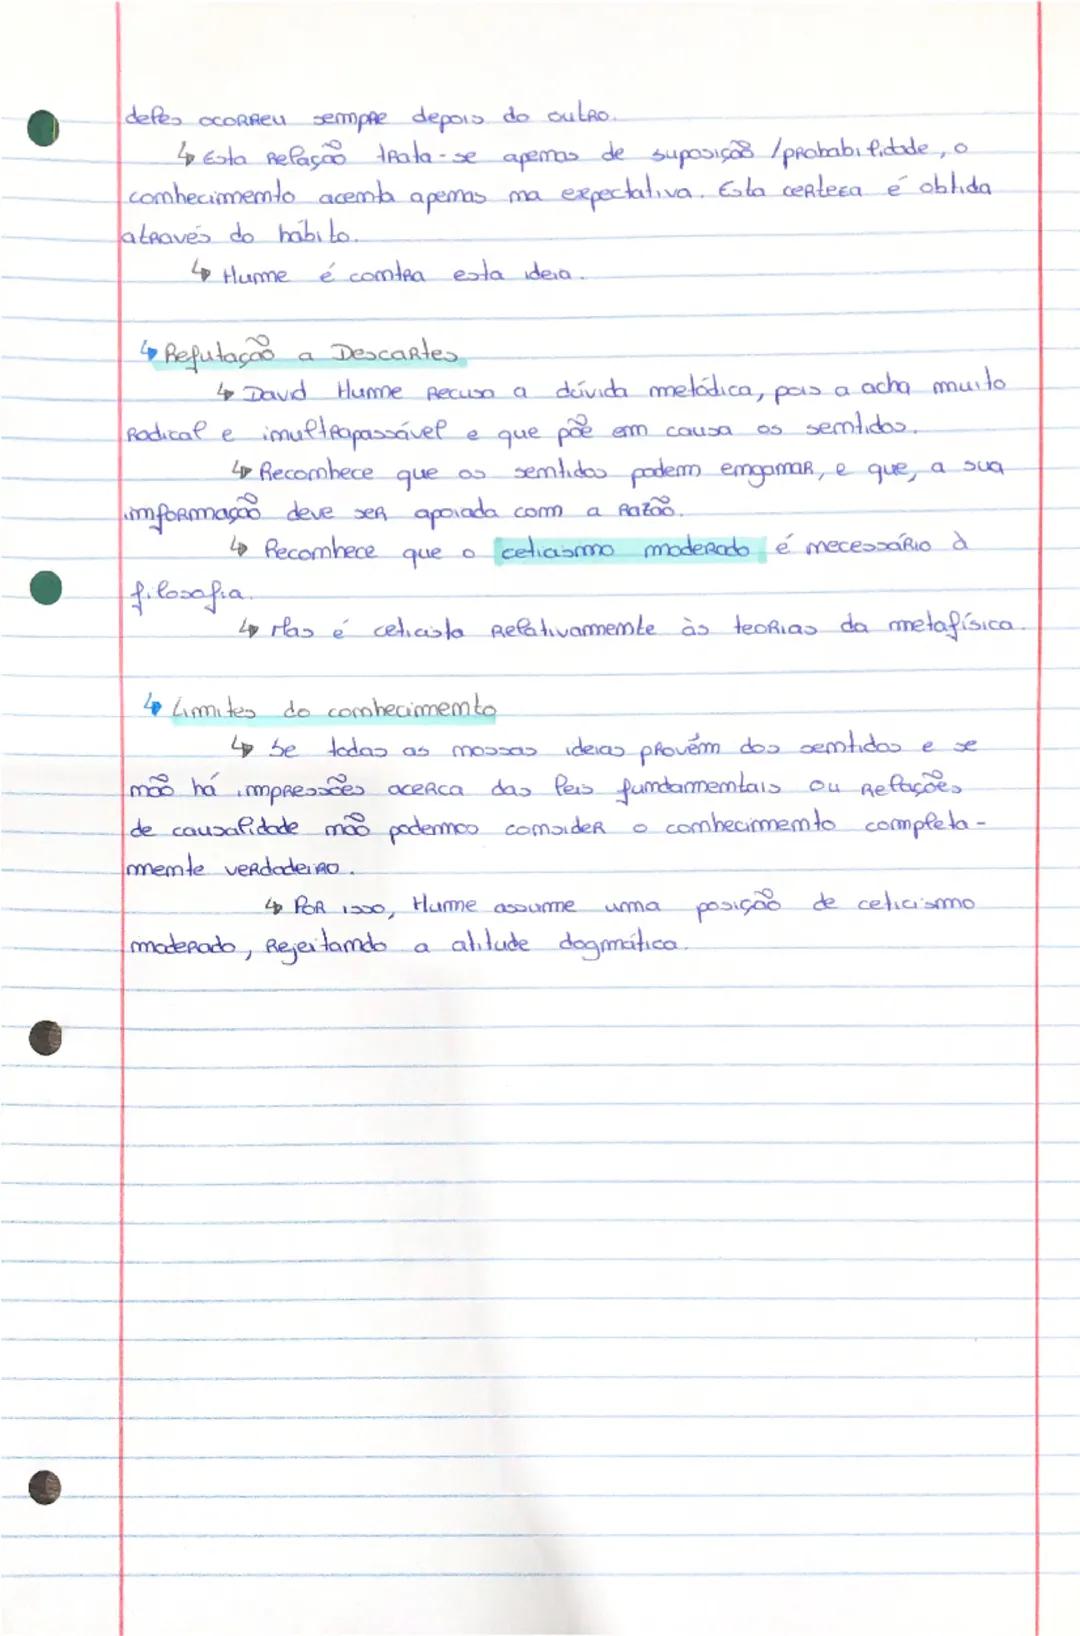 deles ocorreu sempre depois do outro.
↳ Esta relação trata-se apenas de suposição /probabilidade, o
conhecimento acenta apenas na expectativa. Esta certeza é obtida
através do hábito.
↳ Hume é contra esta ideia.
↳ Refutação a Descartes
↳ David Hume recusa a dúvida metódica, pois a acha muito
radical e inultrapassável e que põe em causa os sentidos.
↳ Reconhece que os sentidos podem enganar, e que, a sua
informação deve ser apoiada com a razão.
↳ Reconhece que o ceticismo moderado é necessário à
filosofia.
↳ Mas é ceticista relativamente às teorias da metafísica.
↳ Limites do conhecimento
↳ Se todas as nossas ideias provêm dos sentidos e se
não há impressões acerca das leis fundamentais ou relações
de causalidade não podemos consider o conhecimento completa-
mente verdadeiro.
↳ Por isso, Hume assume uma posição de ceticismo
moderado, rejeitando a atitude dogmática.